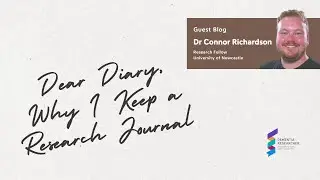 Guest Blog
Dr Connor Richardson
Research Fellow
University of Newcastle
Dear Diary,
Why I Keep a
Research Journal
DEMENTIA
RESEARCHER